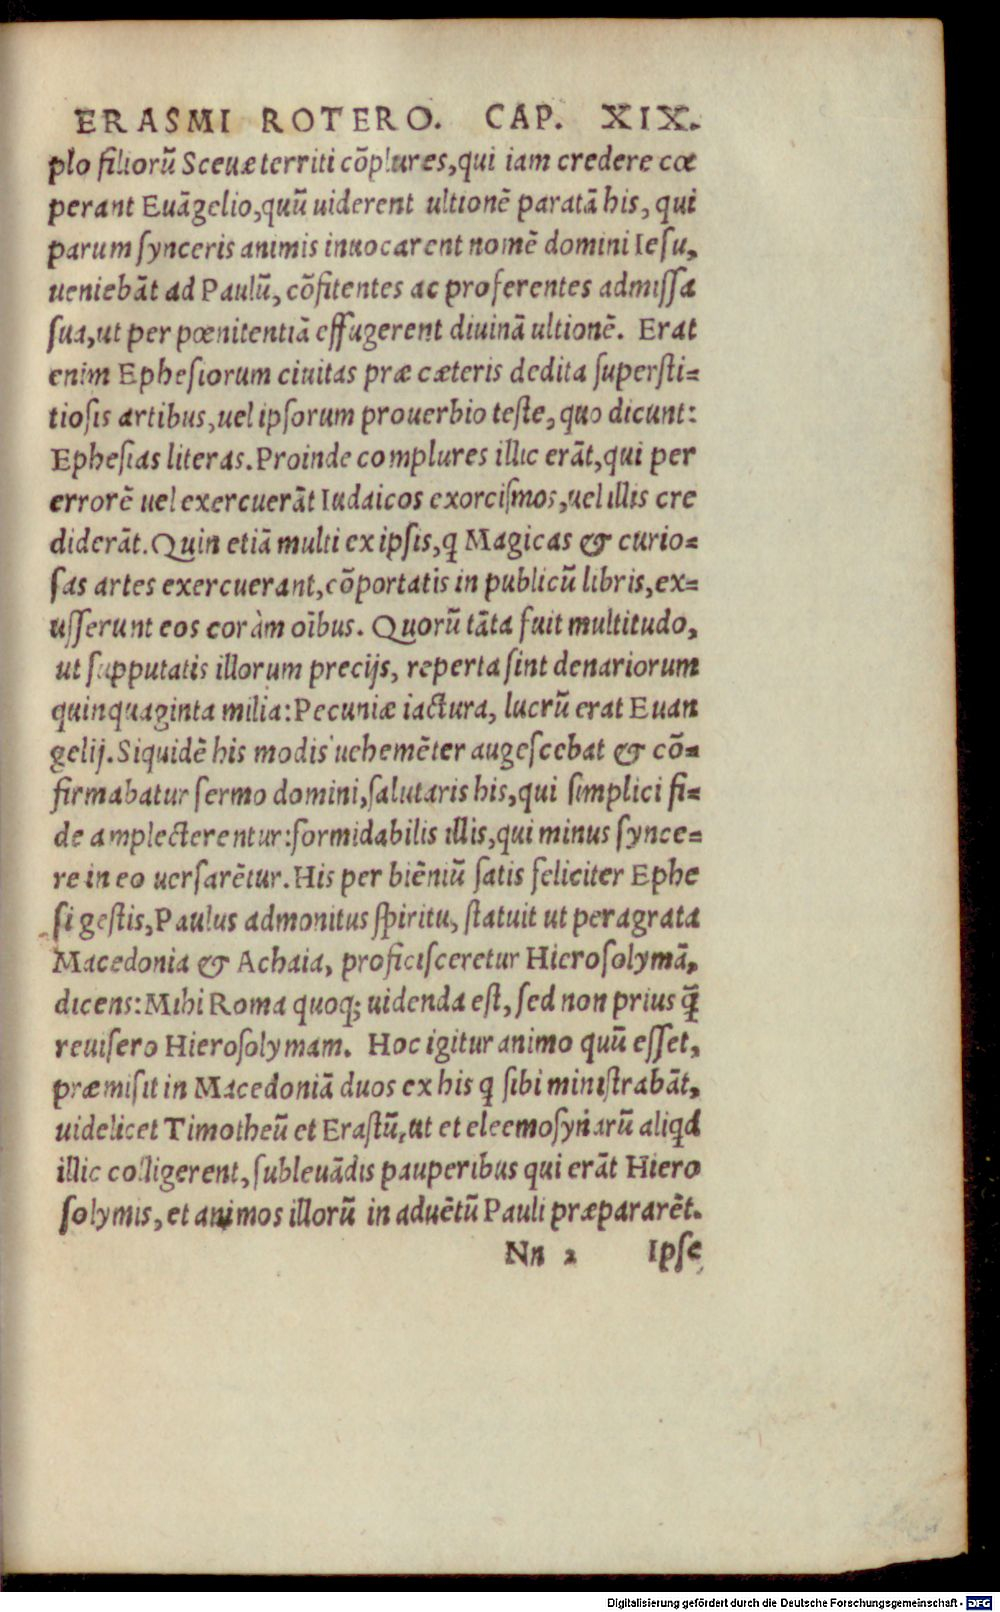 ERASMI ROTERO. CAP. XIX.
plo filiorū Sceuæ territi cōplures, qui iam credere cœ
perant Euāgelio, quū uiderent ultionē paratā his, qui
parum synceris animis inuocarent nomē domini Iesu,
ueniebāt ad Paulū, cōfitentes ac proferentes admissa
sua, ut per pœnitentiā effugerent diuinā ultionē. Erat
enim Ephesiorum ciuitas præ cæteris dedita supersti=
tiosis artibus, uel ipsorum prouerbio teste, quo dicunt:
Ephesias literas. Proinde complures illic erāt, qui per
errorē uel exercuerāt Iudaicos exorcismos, uel illis cre
diderāt. Quin etiā multi ex ipsis, ꝗ Magicas & curio=
sas artes exercuerant, cōportatis in publicū libris, ex=
usserunt eos coràm oībus. Quorū tāta fuit multitudo,
ut supputatis illorum precijs, reperta sint denariorum
quinquaginta milia: Pecuniæ iactura, lucrū erat Euan
gelij. Siquidē his modis uehemēter augescebat & cō=
firmabatur sermo domini, salutaris his, qui simplici fi=
de amplecterentur: formidabilis illis, qui minus synce=
re in eo uersarētur. His per biēniū satis feliciter Ephe
si gestis, Paulus admonitus spiritu, statuit ut peragrata
Macedonia & Achaia, proficisceretur Hierosolymā,
dicens: Mihi Roma quoq; uidenda est, sed non prius q̄
reuisero Hierosolymam. Hoc igitur animo quū esset,
præmisit in Macedoniā duos ex his ꝗ sibi ministrabāt,
uidelicet Timotheū et Erastū, ut et eleemosynarū aliꝗd
illic colligerent, subleuādis pauperibus qui erāt Hiero
solymis, et animos illorū in aduētū Pauli præpararēt.
Nn 2 Ipse
Digitalisierung gefördert durch die Deutsche Forschungsgemeinschaft - DFG